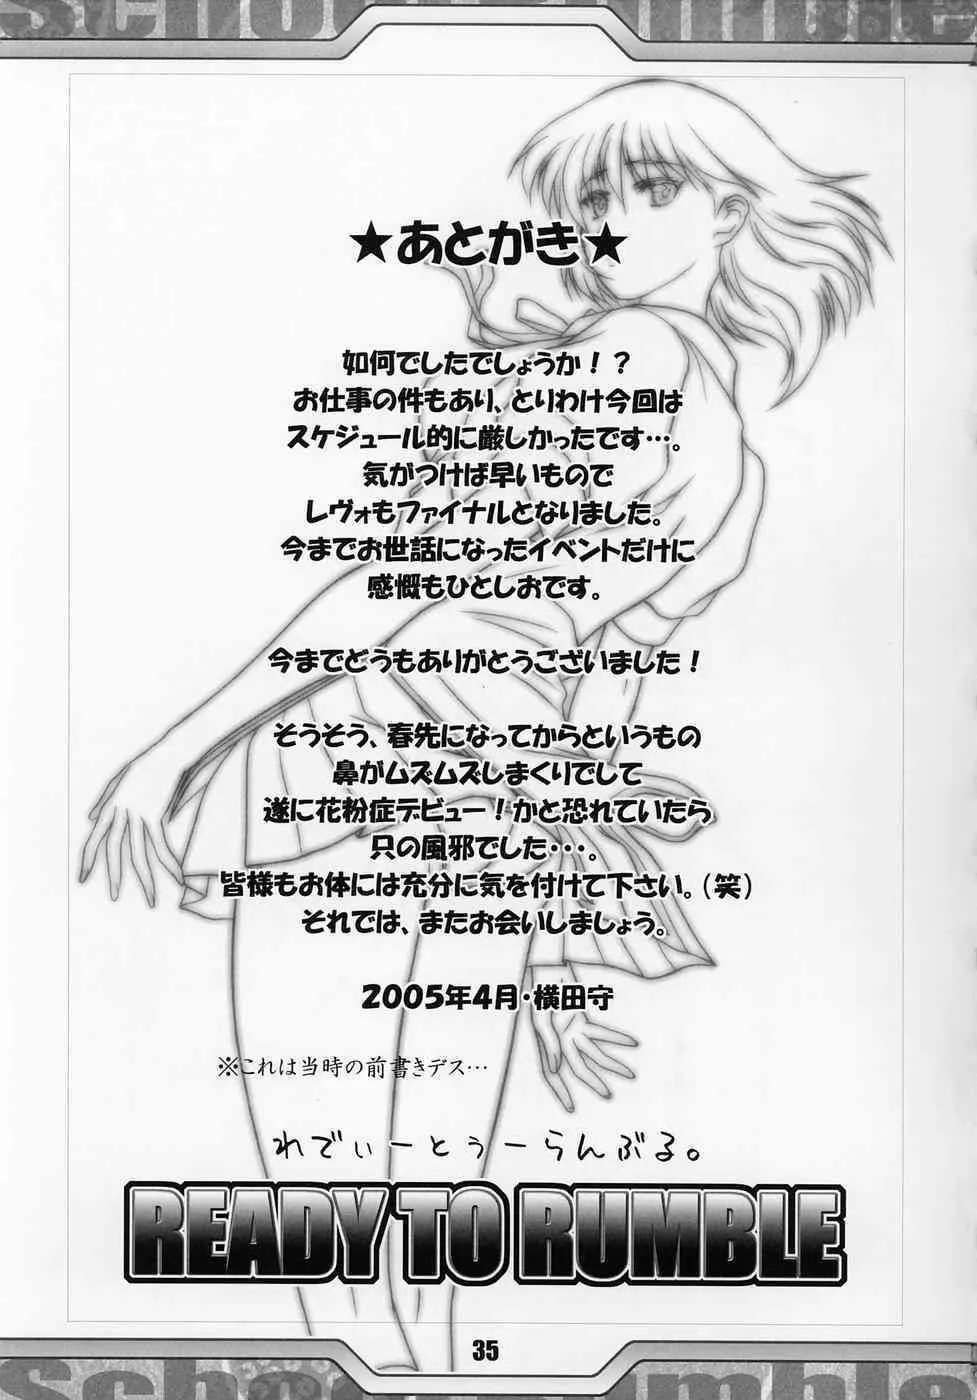 School Rumble
★あとがき★
如何でしたでしょうか！？
お仕事の件もあり、とりわけ今回は
スケジュール的に厳しかったです…。
気がつけば早いもので
レヴォもファイナルとなりました。
今までお世話になったイベントだけに
感慨もひとしおです。
今までどうもありがとうございました！
そうそう、春先になってからというもの
鼻がムズムズしまくりでして
遂に花粉症デビュー！かと恐れていたら
只の風邪でした･･･。
皆様もお体には充分に気を付けて下さい。（笑）
それでは、またお会いしましょう。
2005年4月･横田守
※これは当時の前書きデス…
れでぃーとぅーらんぶる。
READY TO RUMBLE
35
School Rumble